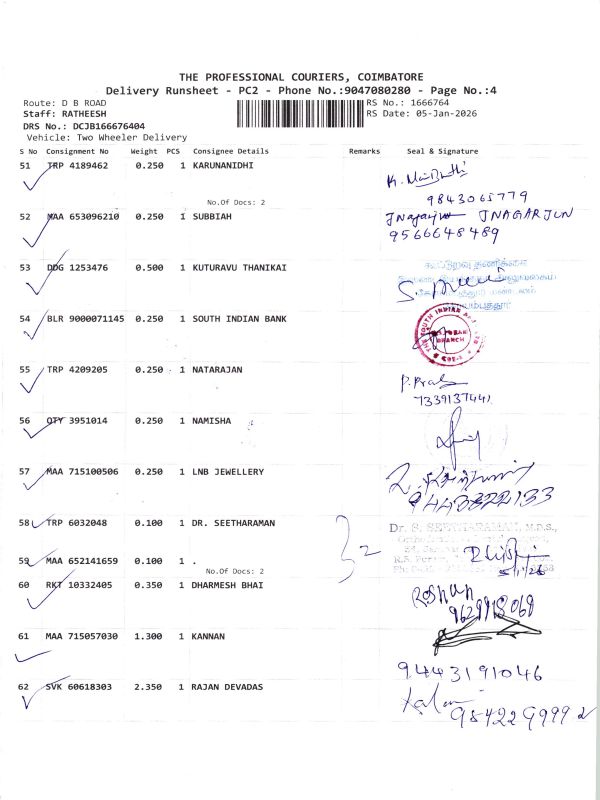 THE PROFESSIONAL COURIERS, COIMBATORE
Delivery Runsheet - PC2 - Phone No.:9047080280 - Page No.:4
Route: D B ROAD
Staff: RATHEESH
DRS No.: DCJB166676404
Vehicle: Two Wheeler Delivery
RS No.: 1666764
RS Date: 05-Jan-2026
S No Consignment No Weight PCS Consignee Details Remarks Seal & Signature
51 TRP 4189462 0.250 1 KARUNANIDHI
No.Of Docs: 2
9843065779
52 MAA 653096210 0.250 1 SUBBIAH
JNAGARJUN
9566648489
53 DDG 1253476 0.500 1 KUTURAVU THANIKAI
54 BLR 9000071145 0.250 1 SOUTH INDIAN BANK
THE SOUTH INDIAN
BRANCH
55 TRP 4209205 0.250 1 NATARAJAN
7339137441
56 QTY 3951014 0.250 1 NAMISHA
57 MAA 715100506 0.250 1 LNB JEWELLERY
9443822133
58 TRP 6032048 0.100 1 DR. SEETHARAMAN
2
Dr. S. SEETHARAMAN, M.D.S.,
59 MAA 652141659 0.100 1 .
No.Of Docs: 2
5/1/26
60 RKT 10332405 0.350 1 DHARMESH BHAI
ROSHAN
61 MAA 715057030 1.300 1 KANNAN
9443191046
62 SVK 60618303 2.350 1 RAJAN DEVADAS
9842299992